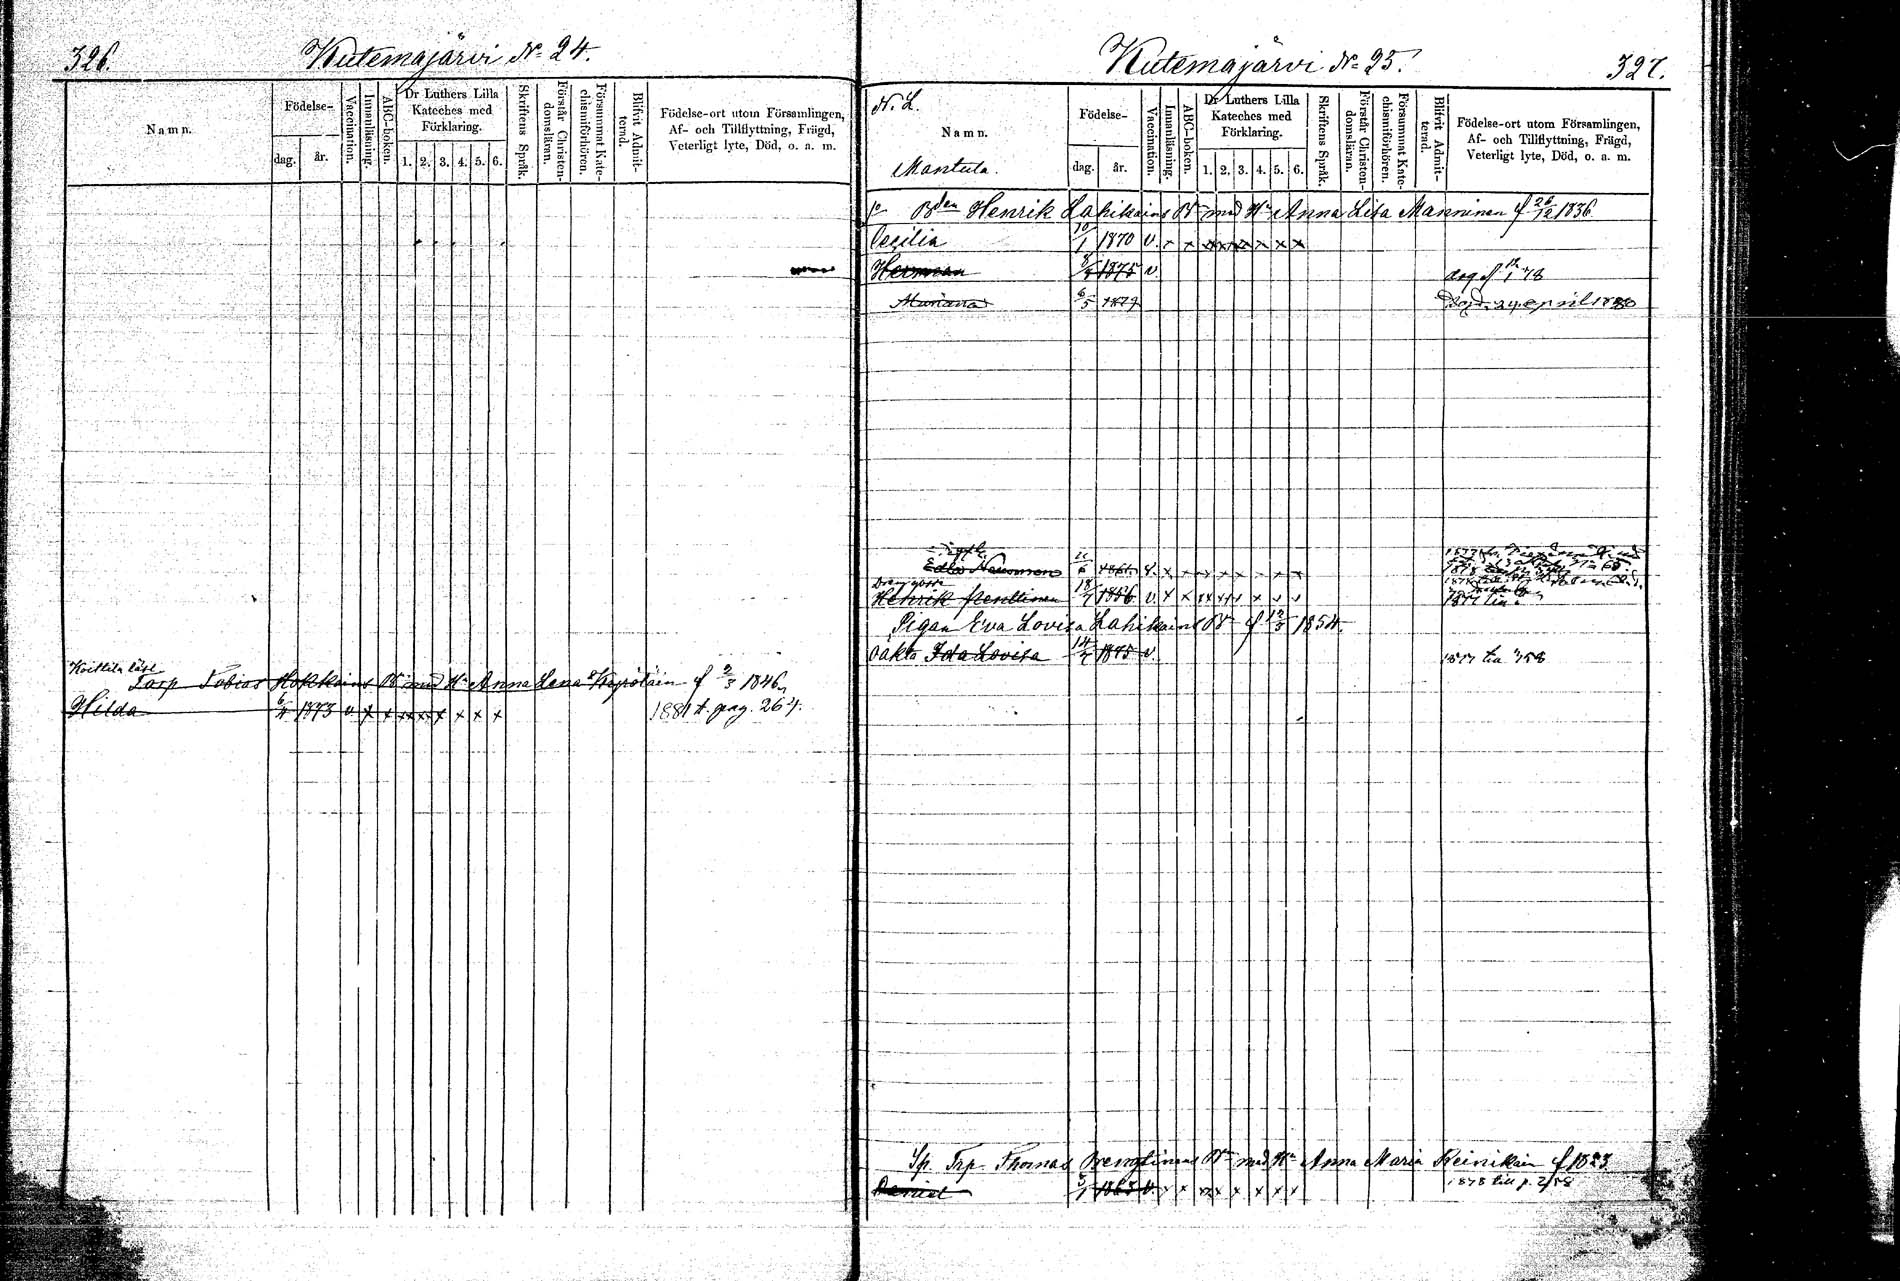 326.
Kutemajärvi No 24.
Namn.
Födelse-
dag.
år.
Vaccination.
Innanläsning.
ABC-boken.
Dr Luthers Lilla
Kateches med
Förklaring.
1. 2. 3. 4. 5. 6.
Skriftens Språk.
Förstår Christen-
domsläran.
Försummat Kate-
chismiförhören.
Blifvit Admit-
terad.
Födelse-ort utom Församlingen,
Af- och Tillflyttning, Frägd,
Veterligt lyte, Död, o. a. m.
Torp Tobias Hokkains Br med Hu Anna Lena f 2/3 1846
Hilda 6/4 1873 v. x x xx xx x x x x 1881 t. pag. 264.
Kutemajärvi No 25.
327.
N. L.
Namn.
Mantula.
Födelse-
dag.
år.
Vaccination.
Innanläsning.
ABC-boken.
Dr Luthers Lilla
Kateches med
Förklaring.
1. 2. 3. 4. 5. 6.
Skriftens Språk.
Förstår Christen-
domsläran.
Försummat Kate-
chismiförhören.
Blifvit Admit-
terad.
Födelse-ort utom Församlingen,
Af- och Tillflyttning, Frägd,
Veterligt lyte, Död, o. a. m.
Bden Henrik Lahikains Br med Hu Anna Lisa Manninen f 26/12 1836
Cecilia 10/1 1870 v. x x xx xx xx x x x
Herman 1875 v. 78
Mariana 6/5 1879 Död. 24 april 1880
Edla
Henrik Penttinen 18/7 1856 v. x x
Pigan Eva Lovisa Lahikains Br f 12/3 1854.
oäkta Ida Lovisa 14/7 1875 v. 1877
Sp. Trp. Thomas Br med Hu Anna Maria Reinikain f 1823.
Daniel 1865 v. x x xx x x x x x 1878 till p.